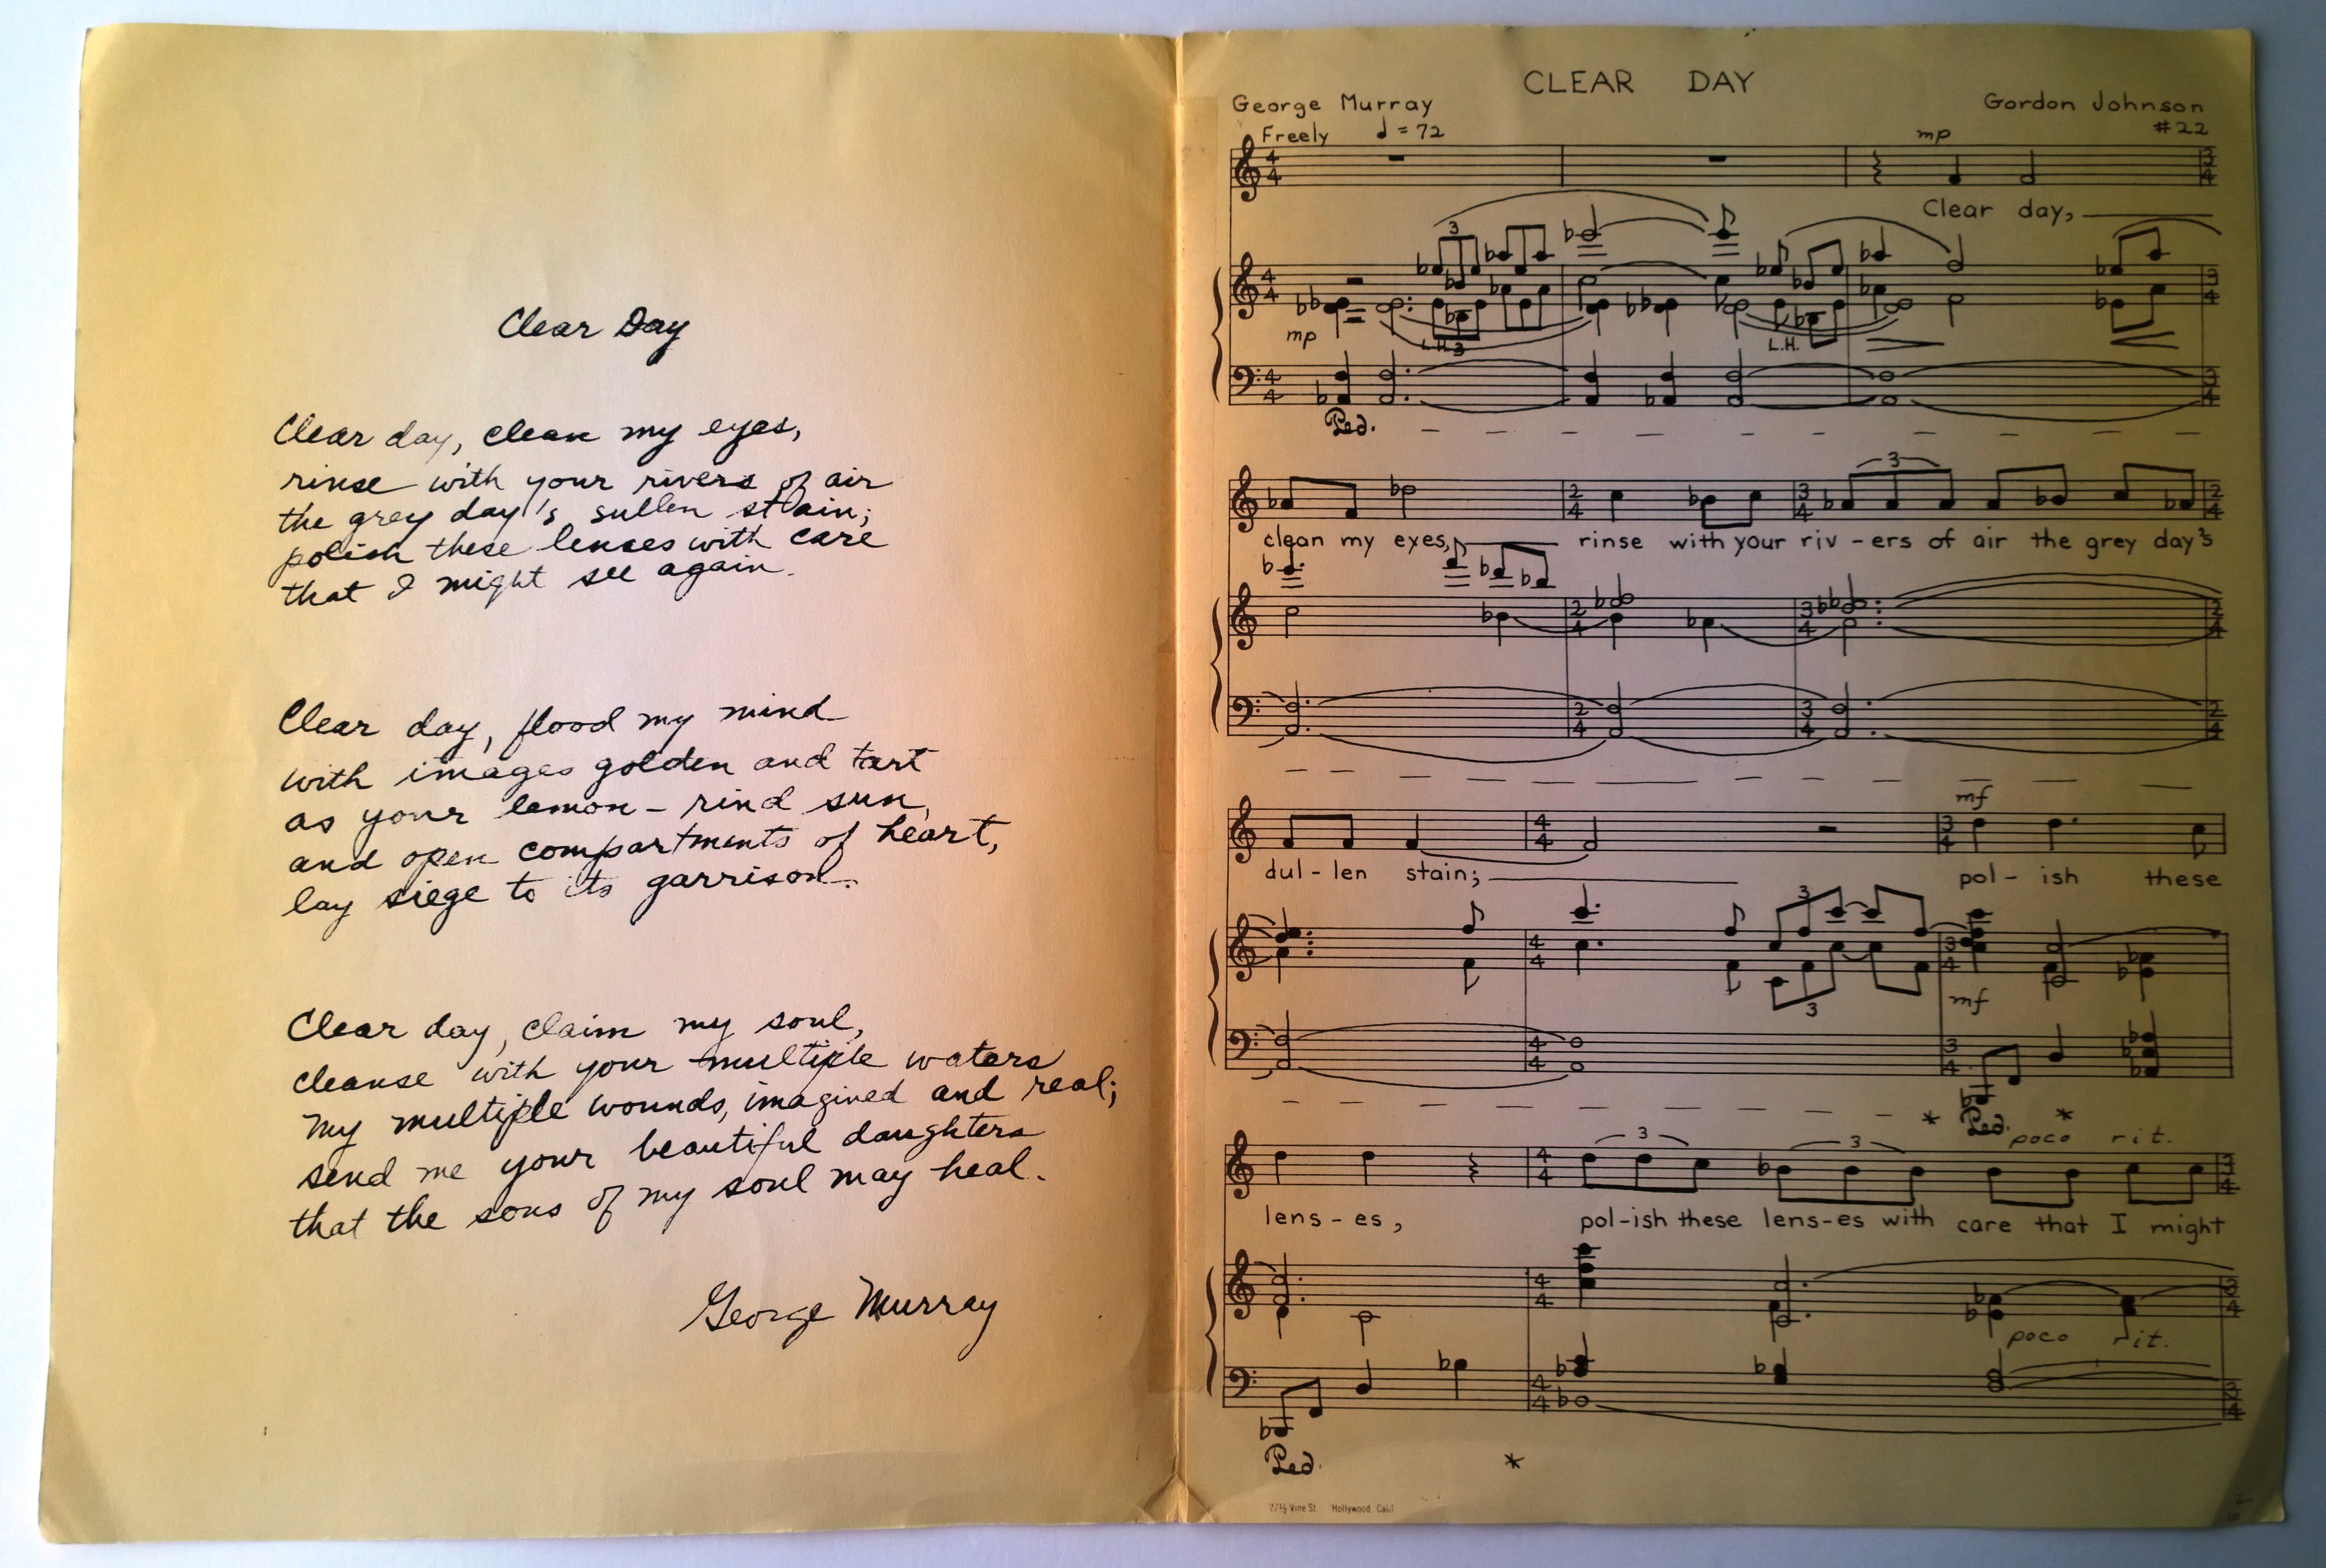 Clear Day
Clear day, clean my eyes,
rinse with your rivers of air
the grey day's sullen stain;
polish these lenses with care
that I might see again.
Clear day, flood my mind
with images golden and tart
as your lemon-rind sun,
and open compartments of heart,
lay siege to its garrison.
Clear day, claim my soul,
cleanse with your multiple waters
my multiple wounds, imagined and real;
send me your beautiful daughters
that the sons of my soul may heal.
George Murray
CLEAR DAY
George Murray
Gordon Johnson
Freely ♩=72
#22
mp
4/4 4/4 3/4
Clear day,
3
mp
L.H. 3
L.H.
Ped.
3
2/4 3/4 2/4
clean my eyes, rinse with your riv-ers of air the grey day's
mf
4/4 3/4
dul-len stain; pol-ish these
3
3
mf
* Ped. *
poco rit.
3 3
4/4 3/4
lens-es, pol-ish these lens-es with care that I might
poco rit.
Ped. *
Vine St. Hollywood, Calif.